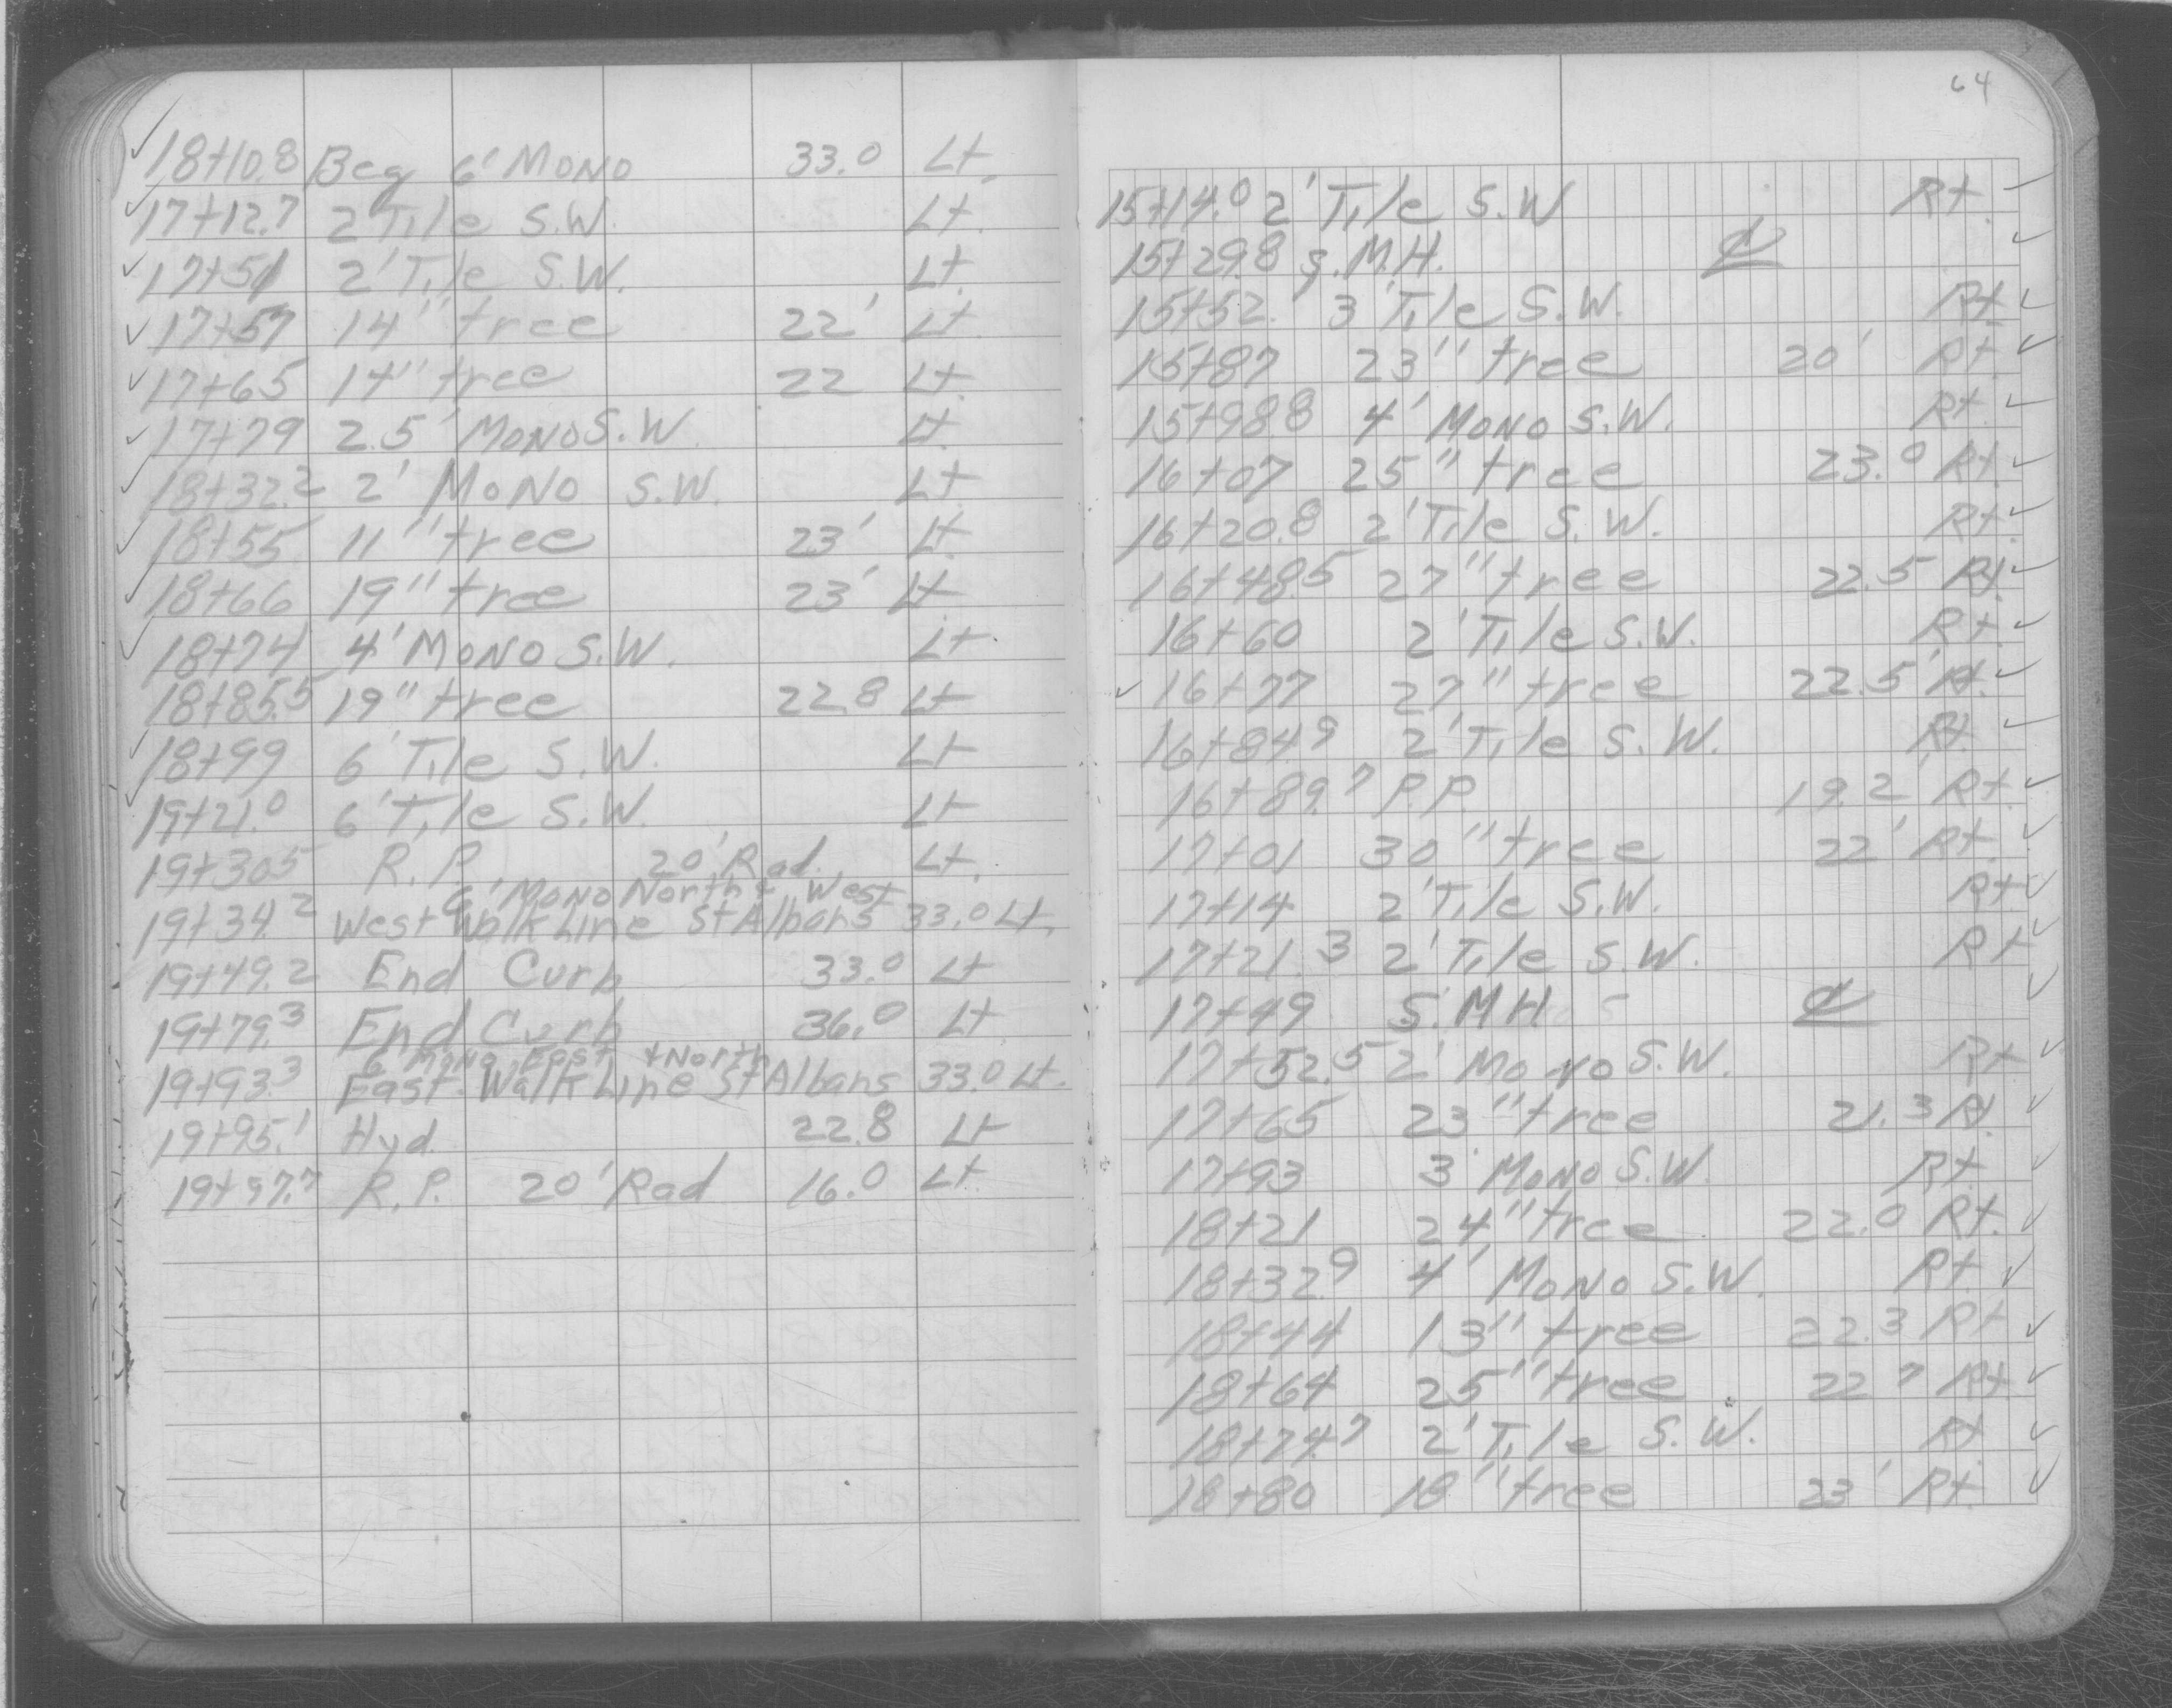 ✓ 18+10.8 Beg 6' MONO 33.0 Lt.
✓ 17+12.7 2' Tile S.W. Lt.
✓ 17+51 2' Tile S.W. Lt.
✓ 17+57 14" tree 22' Lt
✓ 17+65 14" tree 22 Lt.
✓ 17+79 2.5' MONO S.W. Lt.
✓ 18+32.2 2' MONO S.W. Lt
✓ 18+55 11" tree 23' Lt.
✓ 18+66 19" tree 23' Lt.
✓ 18+74 4' MONO S.W. Lt.
18+85.5 19" tree 22.8 Lt
✓ 18+99 6' Tile S.W. Lt
✓ 19+21.0 6' Tile S.W. Lt
19+30.5 R.P. 20' Rad. Lt.
6' MONO North & West
19+34.2 West Walk Line St Albans 33.0 Lt.
19+49.2 End Curb 33.0 Lt
19+79.3 End Curb 36.0 Lt
6' MONO East & North
19+93.3 East Walk Line St Albans 33.0 Lt.
19+95.1 Hyd. 22.8 Lt
19+97.7 R.P. 20' Rad 16.0 Lt
64
15+14.0 2' Tile S.W Rt. ✓
15+29.8 S.M.H. ℄ ✓
15+52. 3' Tile S.W. Rt ✓
15+87 23" tree 20' Rt. ✓
15+98.8 4' MONO S.W. Rt. ✓
16+07 25" tree 23.0 Rt. ✓
16+20.8 2' Tile S.W. Rt. ✓
16+48.5 27" tree 22.5 Rt. ✓
16+60 2' Tile S.W. Rt. ✓
✓ 16+77 27" tree 22.5' Rt. ✓
16+84.9 2' Tile S.W. Rt. ✓
16+89.7 P.P. 19.2' Rt. ✓
17+01 30" tree 22' Rt. ✓
17+14 2' Tile S.W. Rt ✓
17+21.3 2' Tile S.W. Rt ✓
17+49 S.MH ℄ ✓
17+52.5 2' MONO S.W. Rt ✓
17+65 23" tree 21.3 Rt. ✓
17+93 3' MONO S.W. Rt. ✓
18+21 24" tree 22.0 Rt. ✓
18+32.9 4' MONO S.W. Rt. ✓
18+44 13" tree 22.3 Rt ✓
18+64 25" tree 22.7 Rt ✓
18+74.7 2' Tile S.W. Rt ✓
18+80 18" tree 23' Rt. ✓